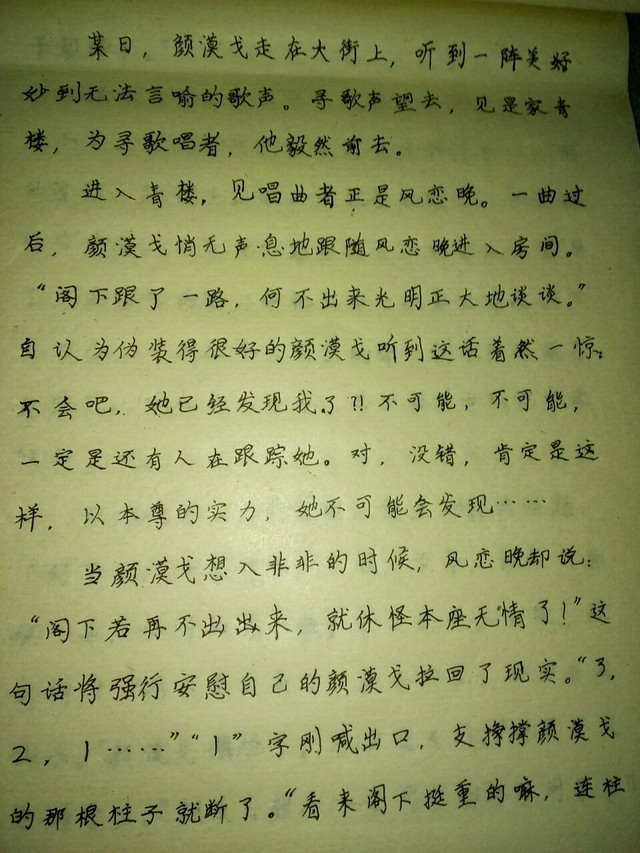 某日，颜漠戈走在大街上，听到一阵美好
妙到无法言喻的歌声。寻歌声望去，见是家青
楼，为寻歌唱者，他毅然前去。
进入青楼，见唱曲者正是风恋晚。一曲过
后，颜漠戈悄无声息地跟随风恋晚进入房间。
“阁下跟了一路，何不出来光明正大地谈谈。”
自认为伪装得很好的颜漠戈听到这话着然一惊：
不会吧，她已经发现我了？！不可能，不可能，
一定是还有人在跟踪她。对，没错，肯定是这
样，以本尊的实力，她不可能会发现……
当颜漠戈想入非非的时候，风恋晚却说：
“阁下若再不出出来，就休怪本座无情了！”这
句话将强行安慰自己的颜漠戈拉回了现实。“3，
2，1……”“1”字刚喊出口，支撑颜漠戈
的那根柱子就断了。“看来阁下挺重的嘛，连柱